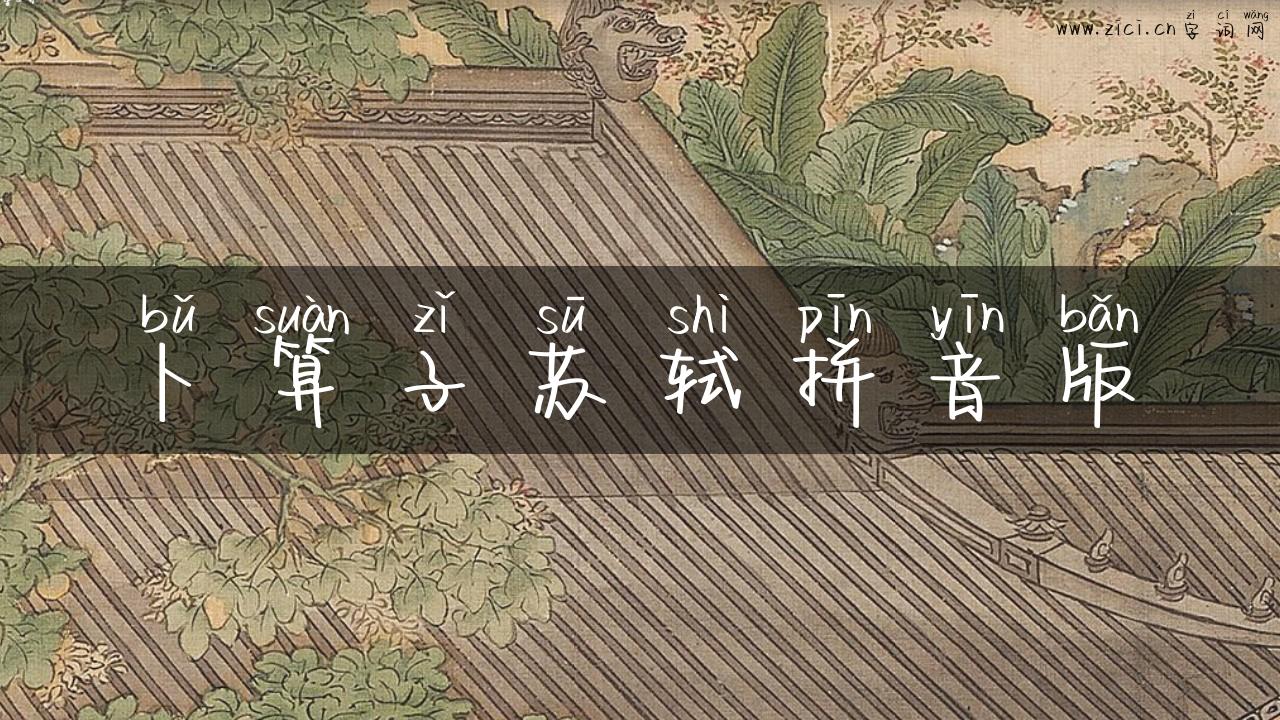 zì cí wǎng
www.zici.cn 字词网
bǔ suàn zǐ sū shì pīn yīn bǎn
卜算子苏轼拼音版